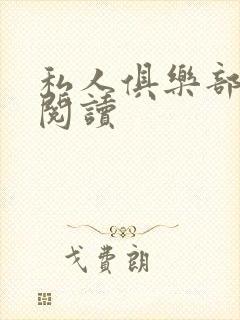 私人俱樂部
閱讀
戈費朗